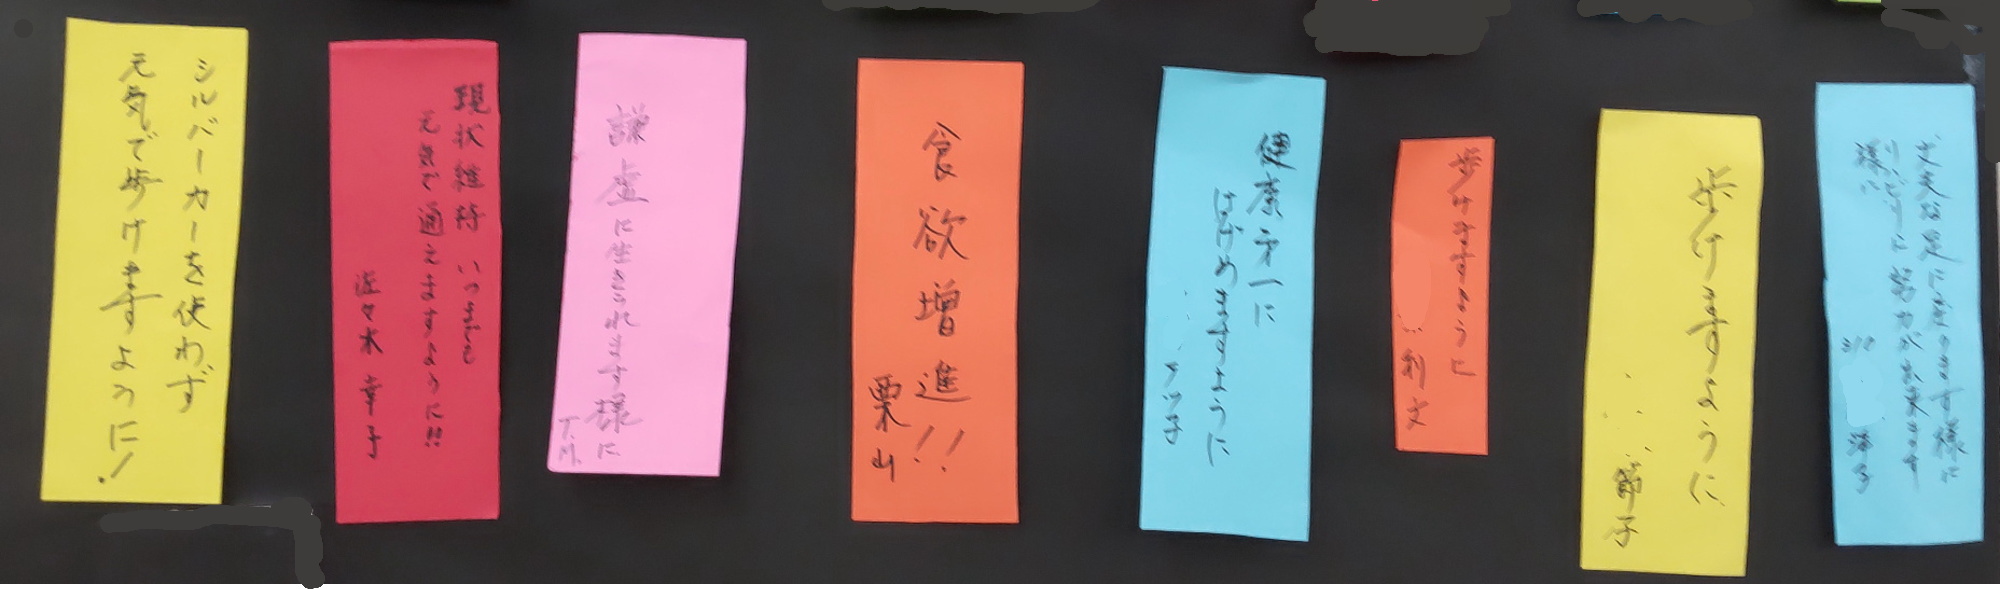 シルバーカーを使わず
元気で歩けますように!
現状維持 いつまでも
元気で通えますように!!
佐々木 幸子
謙虚に生きられます様に
T.M.
食欲増進!!
栗山
健康才一に
はげめますように
歩けますように
利文
歩けますように
節子
丈夫な足になります様に
リハビリに努力が出来ます
様に
洋子